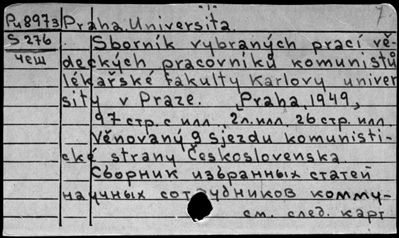 Ри8973 Praha. Universita. 7.
S 276 Sborník vybraných prací vě-
чеш deckých pracovníků komunistů
lékařské fakulty Karlovy univer
sity v Praze. Praha, 1949,
97 стр. с илл. 2 л. илл. 26 стр. илл.
Věnovaný 9 sjezdu komunisti-
cké strany Československa
Сборник избранных статей
научных сотрудников комму-
см. след. карт